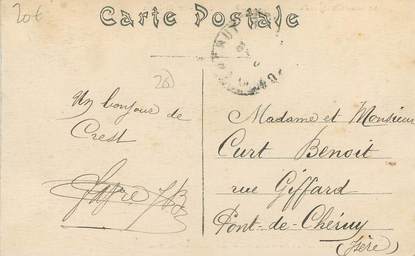 20€
Carte Postale
20
Un bonjour de
Crest
Madame et Monsieur
Curt Benoit
rue Giffard
Pont-de-Chéruy
(Isère)